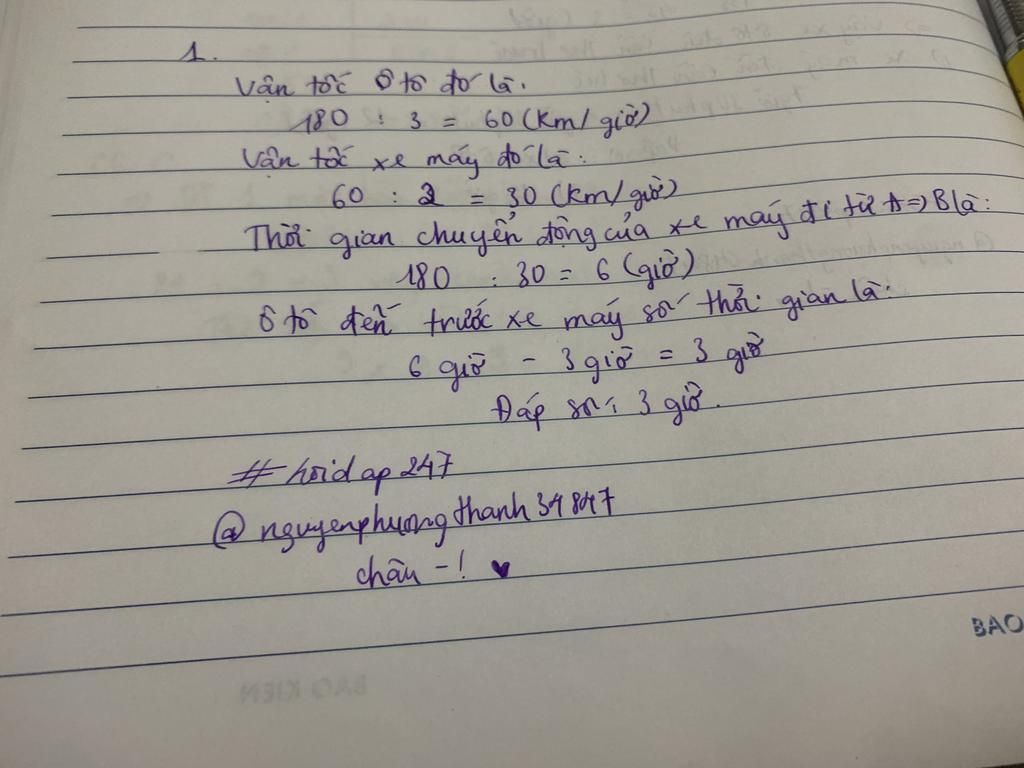 1.
Vận tốc ô tô đó là.
180 : 3 = 60 (Km/giờ)
Vận tốc xe máy đó là:
60 : 2 = 30 (km/giờ)
Thời gian chuyển động của xe máy đi từ A => B là:
180 : 30 = 6 (giờ)
Ô tô đến trước xe máy số thời gian là:
6 giờ - 3 giờ = 3 giờ
Đáp số: 3 giờ.
# hoidap247
@nguyenphuongthanh34847
chầu -! ♥
BAO